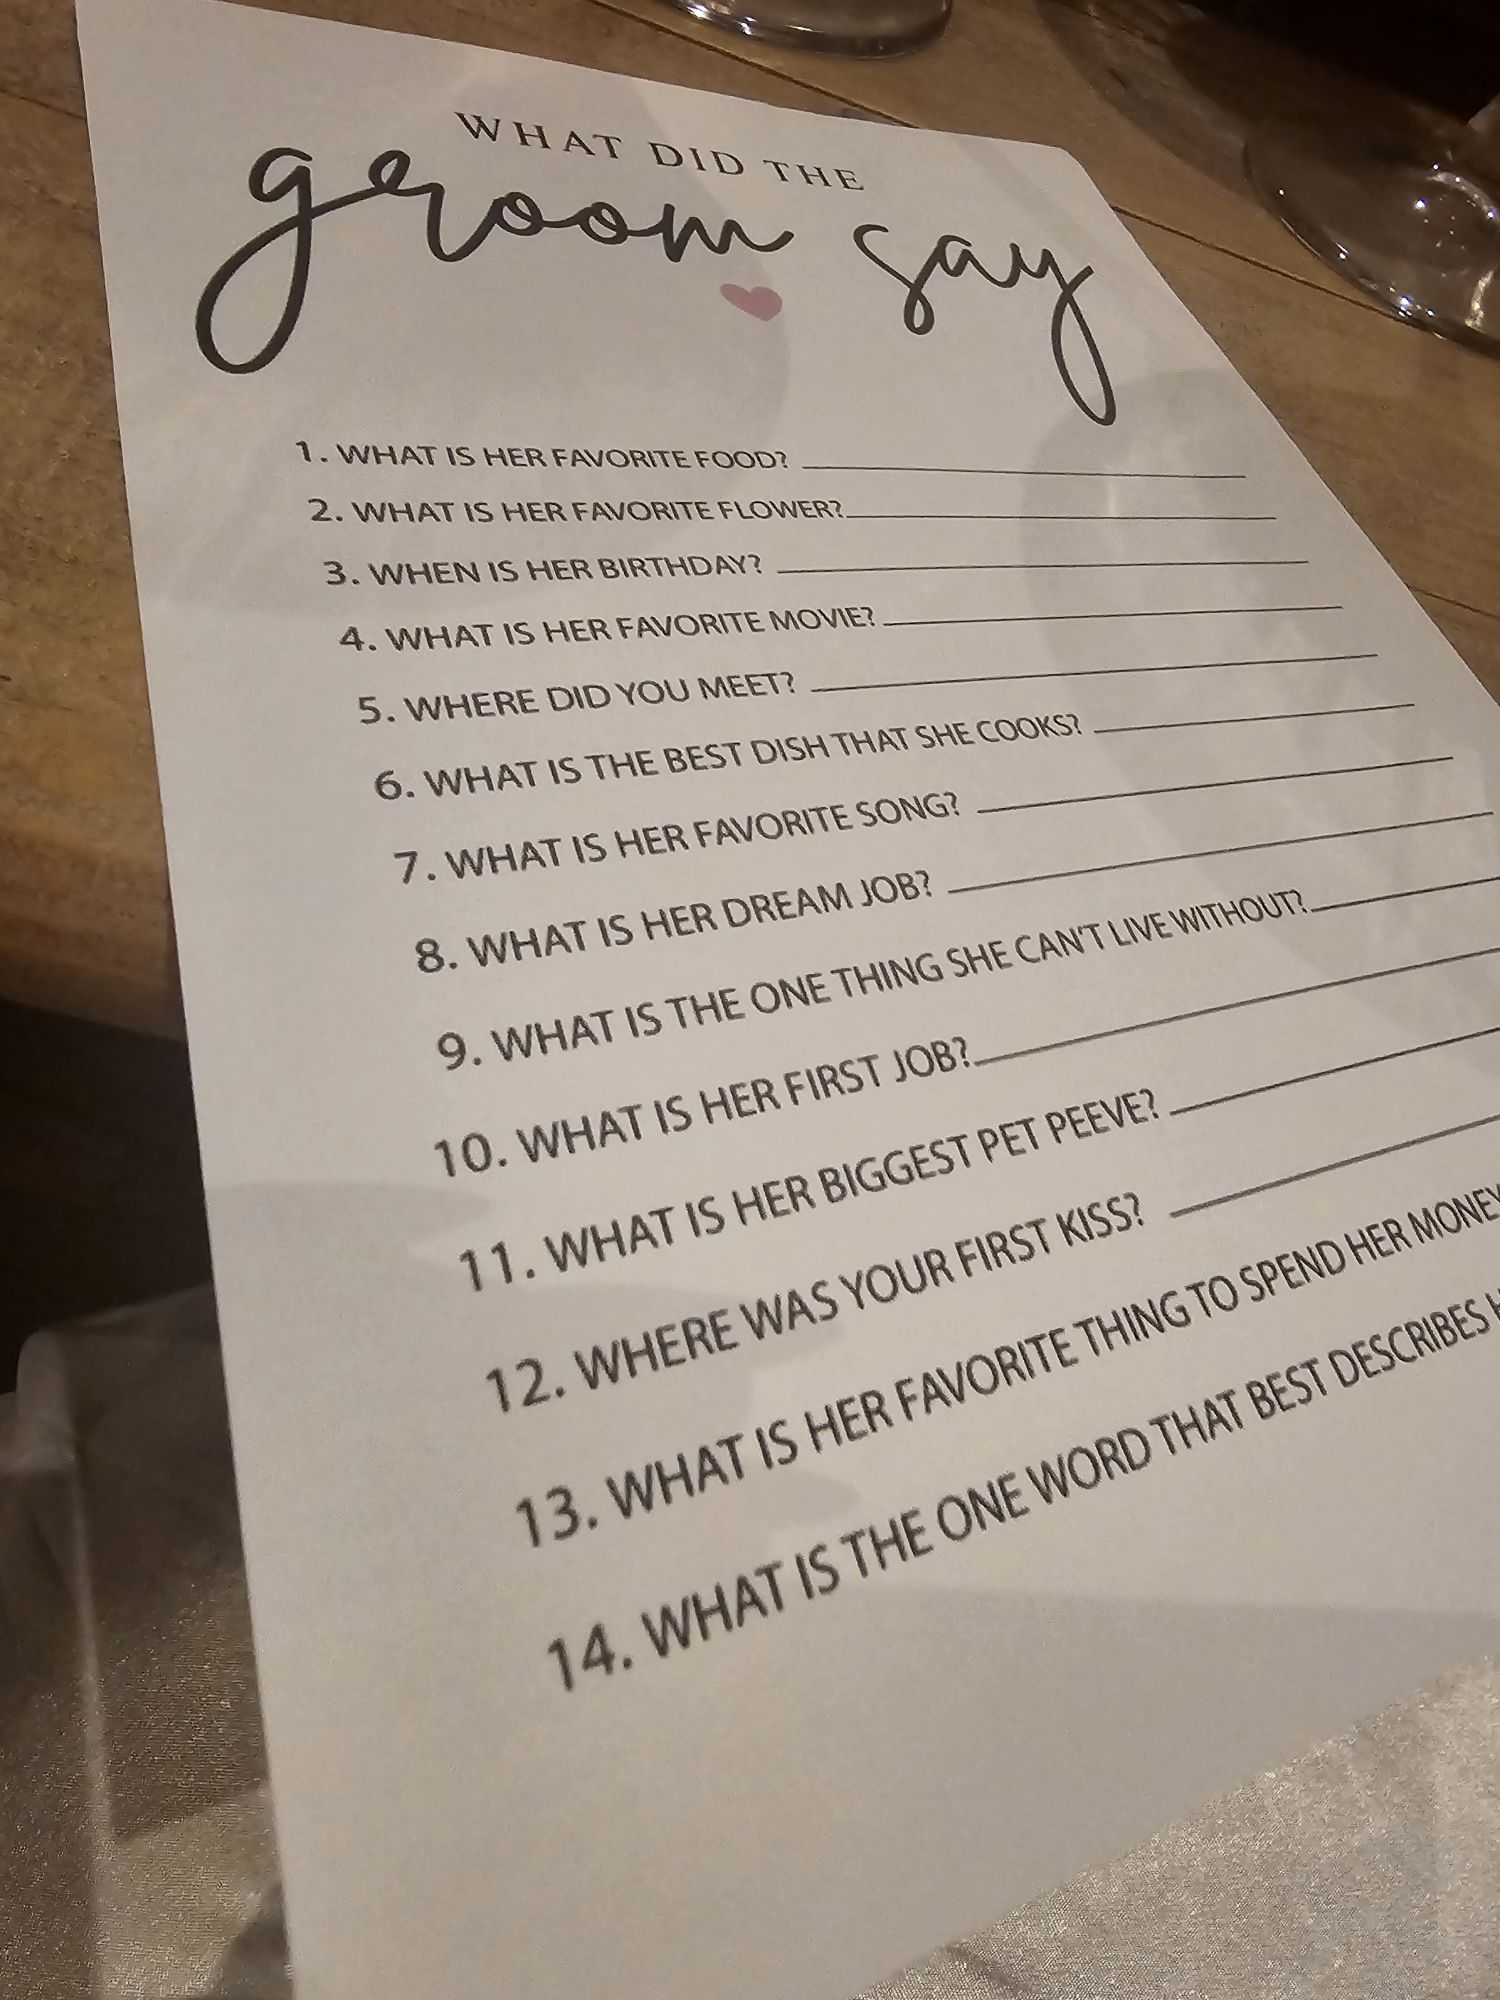 WHAT DID THE
groom say
1. WHAT IS HER FAVORITE FOOD?
2. WHAT IS HER FAVORITE FLOWER?
3. WHEN IS HER BIRTHDAY?
4. WHAT IS HER FAVORITE MOVIE?
5. WHERE DID YOU MEET?
6. WHAT IS THE BEST DISH THAT SHE COOKS?
7. WHAT IS HER FAVORITE SONG?
8. WHAT IS HER DREAM JOB?
9. WHAT IS THE ONE THING SHE CAN'T LIVE WITHOUT?
10. WHAT IS HER FIRST JOB?
11. WHAT IS HER BIGGEST PET PEEVE?
12. WHERE WAS YOUR FIRST KISS?
13. WHAT IS HER FAVORITE THING TO SPEND HER MONEY
14. WHAT IS THE ONE WORD THAT BEST DESCRIBES